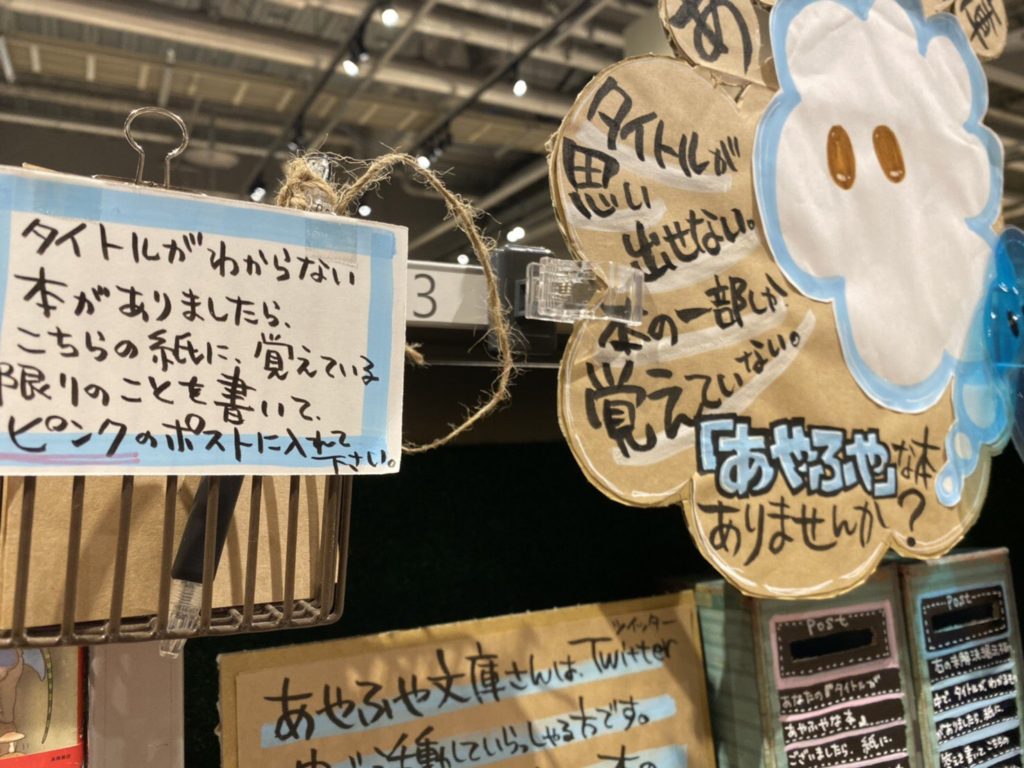 タイトルがわからない
本がありましたら、
こちらの紙に、覚えている
限りのことを書いて、
ピンクのポストに入れて
下さい。
3
あ
タイトルが
思い
出せない。
本の一部しか
覚えていない。
「あやふや」な本
ありませんか?
あやふや文庫さんは、Twitter
ツイッター
活動していらっしゃる方です。
本の
Post
あなたの『タイトルが
あやふやな本』
ございましたら、紙に、
Post
右の手
中で、タイトルがわかるもの
がありましたら、紙に、
答えを書いてこちらの